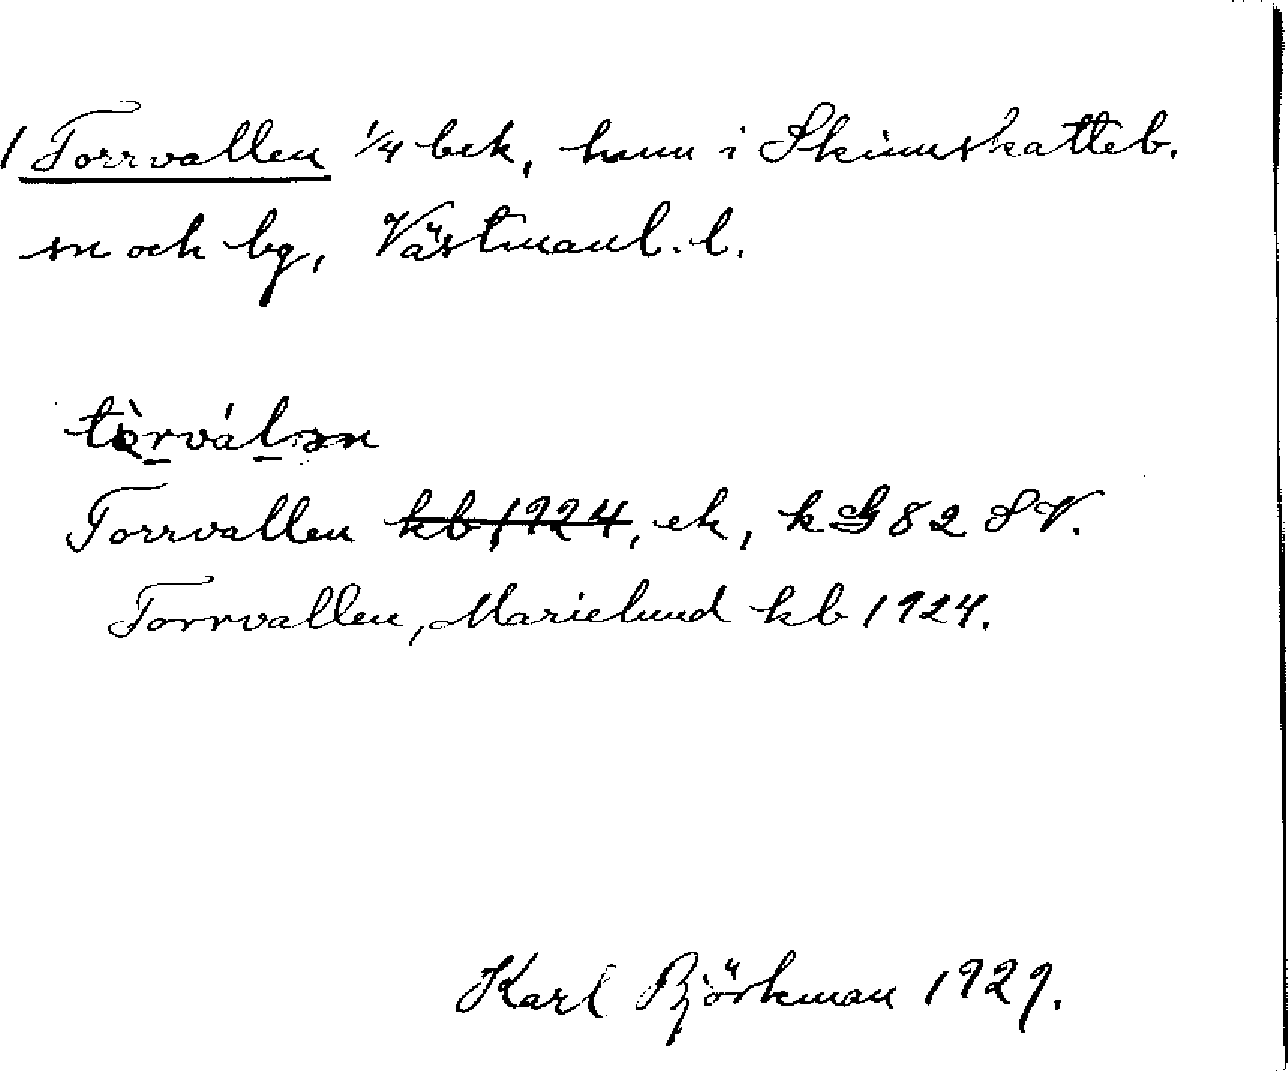 1 Torrvallen 1/4 bek, hmn i Skinnskatteb.
sn och bg, Västmanl. l.
tòrválən
Torrvallen kb 1924, ek, k G 82 SV.
Torrvallen, Marielund kb 1924.
Karl Björkman 1929.